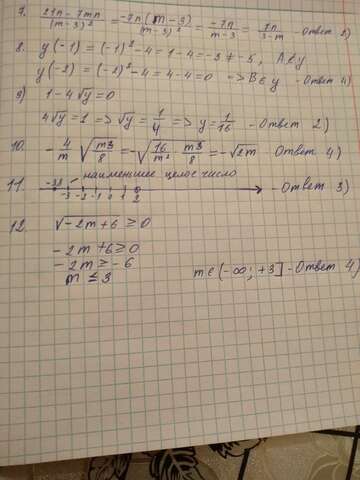 7. 21n - 7mn / (m-3)² = -7n(m-3) / (m-3)² = -7n / m-3 = 7n / 3-m - Ответ 3)
8. y(-1) = (-1)² - 4 = 1 - 4 = -3 ≠ -5, A ∉ y
y(-2) = (-2)² - 4 = 4 - 4 = 0 => B ∈ y - Ответ 4)
9) 1 - 4√y = 0
4√y = 1 => √y = 1/4 => y = 1/16 - Ответ 2)
10. - 4/m √(m3/8) = -√(16/m² · m3/8) = -√2m Ответ 4)
наименьшее целое число
11. -3,8 -3 -2 -1 0 1 2 - Ответ 3)
12. √-2m + 6 ≥ 0
-2m + 6 ≥ 0
-2m ≥ -6
m ≤ 3 m ∈ (-∞; +3] - Ответ 4)